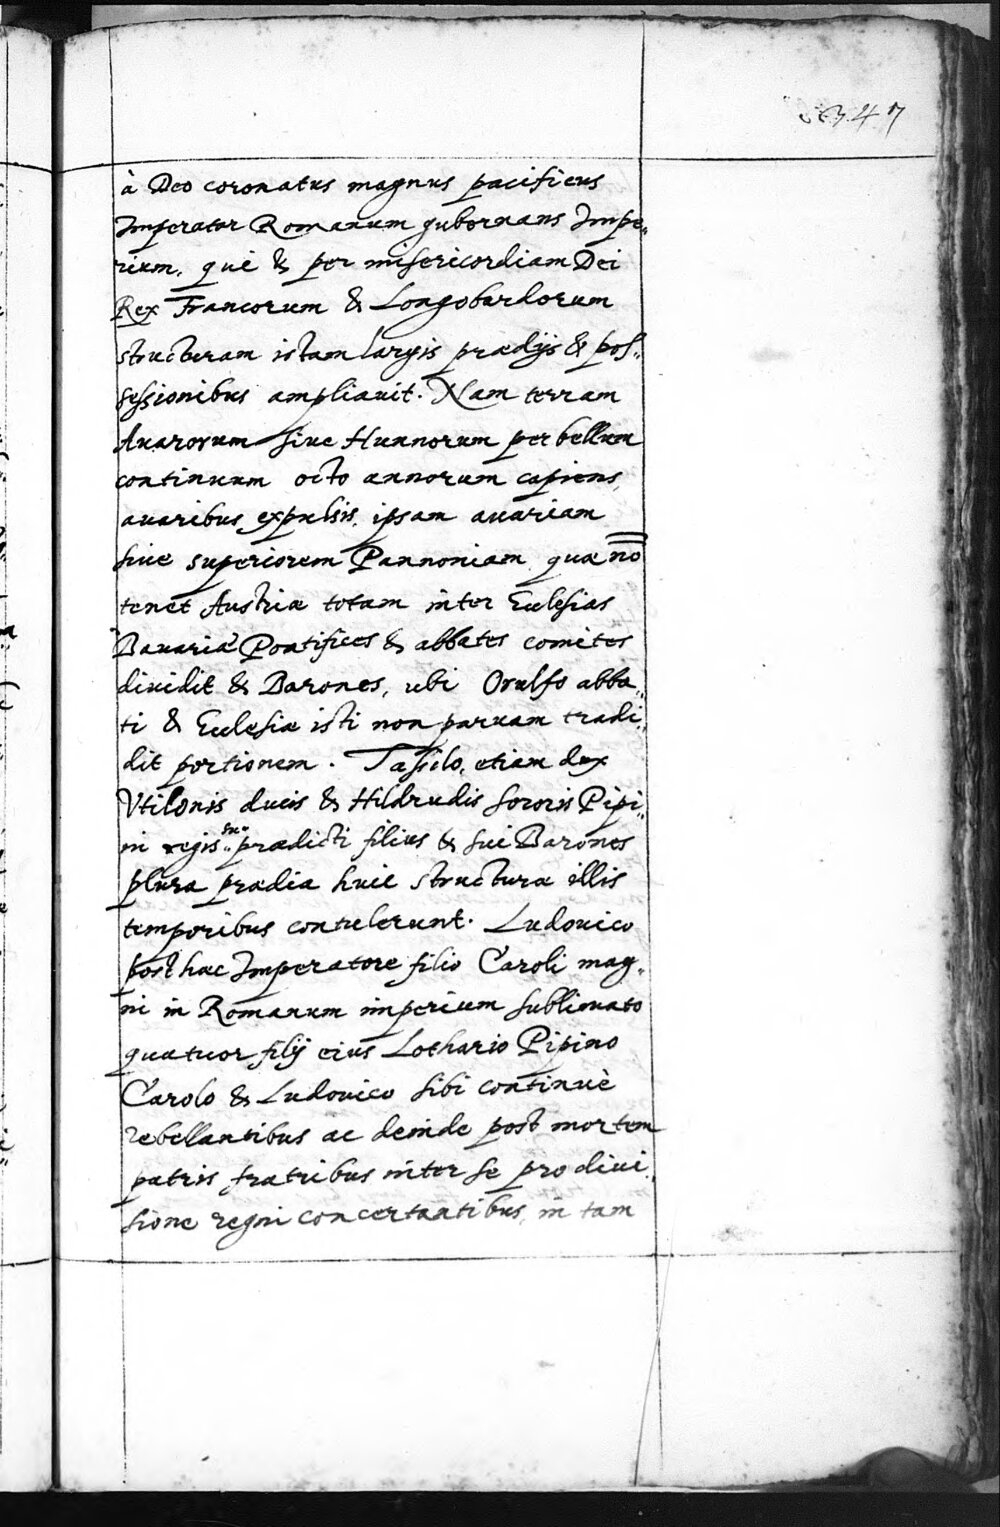 347
à Deo coronatus magnus pacificus
Imperator Romanum gubernans Impe„
rium, qui & per misericordiam Dei
Rex Francorum & Longobardorum
structuram istam largis prædijs & pos„
sessionibus ampliauit. Nam terram
Auarorum siue Hunnorum per bellum
continuum octo annorum capiens,
auaribus expulsis, ipsam auariam
siue superiorem Pannoniam, quæ nō
tenet Austriæ totam inter Ecclesias
Bauariæ Pontifices & abbates comites
diuidit & Barones, ubi Orulfo abba„
ti & Ecclesiæ isti non paruam tradi„
dit portionem. Tassilo, etiam dux
Vtilonis ducis & Hildrudis sororis Pipi„
ni regis prædicti filius & sui Barones
plura prædia huic structuræ illis
temporibus contulerunt. Ludouico
post hac Imperatore filio Caroli mag„
ni in Romanum imperium sublimato
quatuor filij eius Lothario Pipino
Carolo & Ludouico sibi continuè
rebellantibus ac deinde post mortem
patris fratribus inter se pro diui„
sione regni concertantibus, in tam